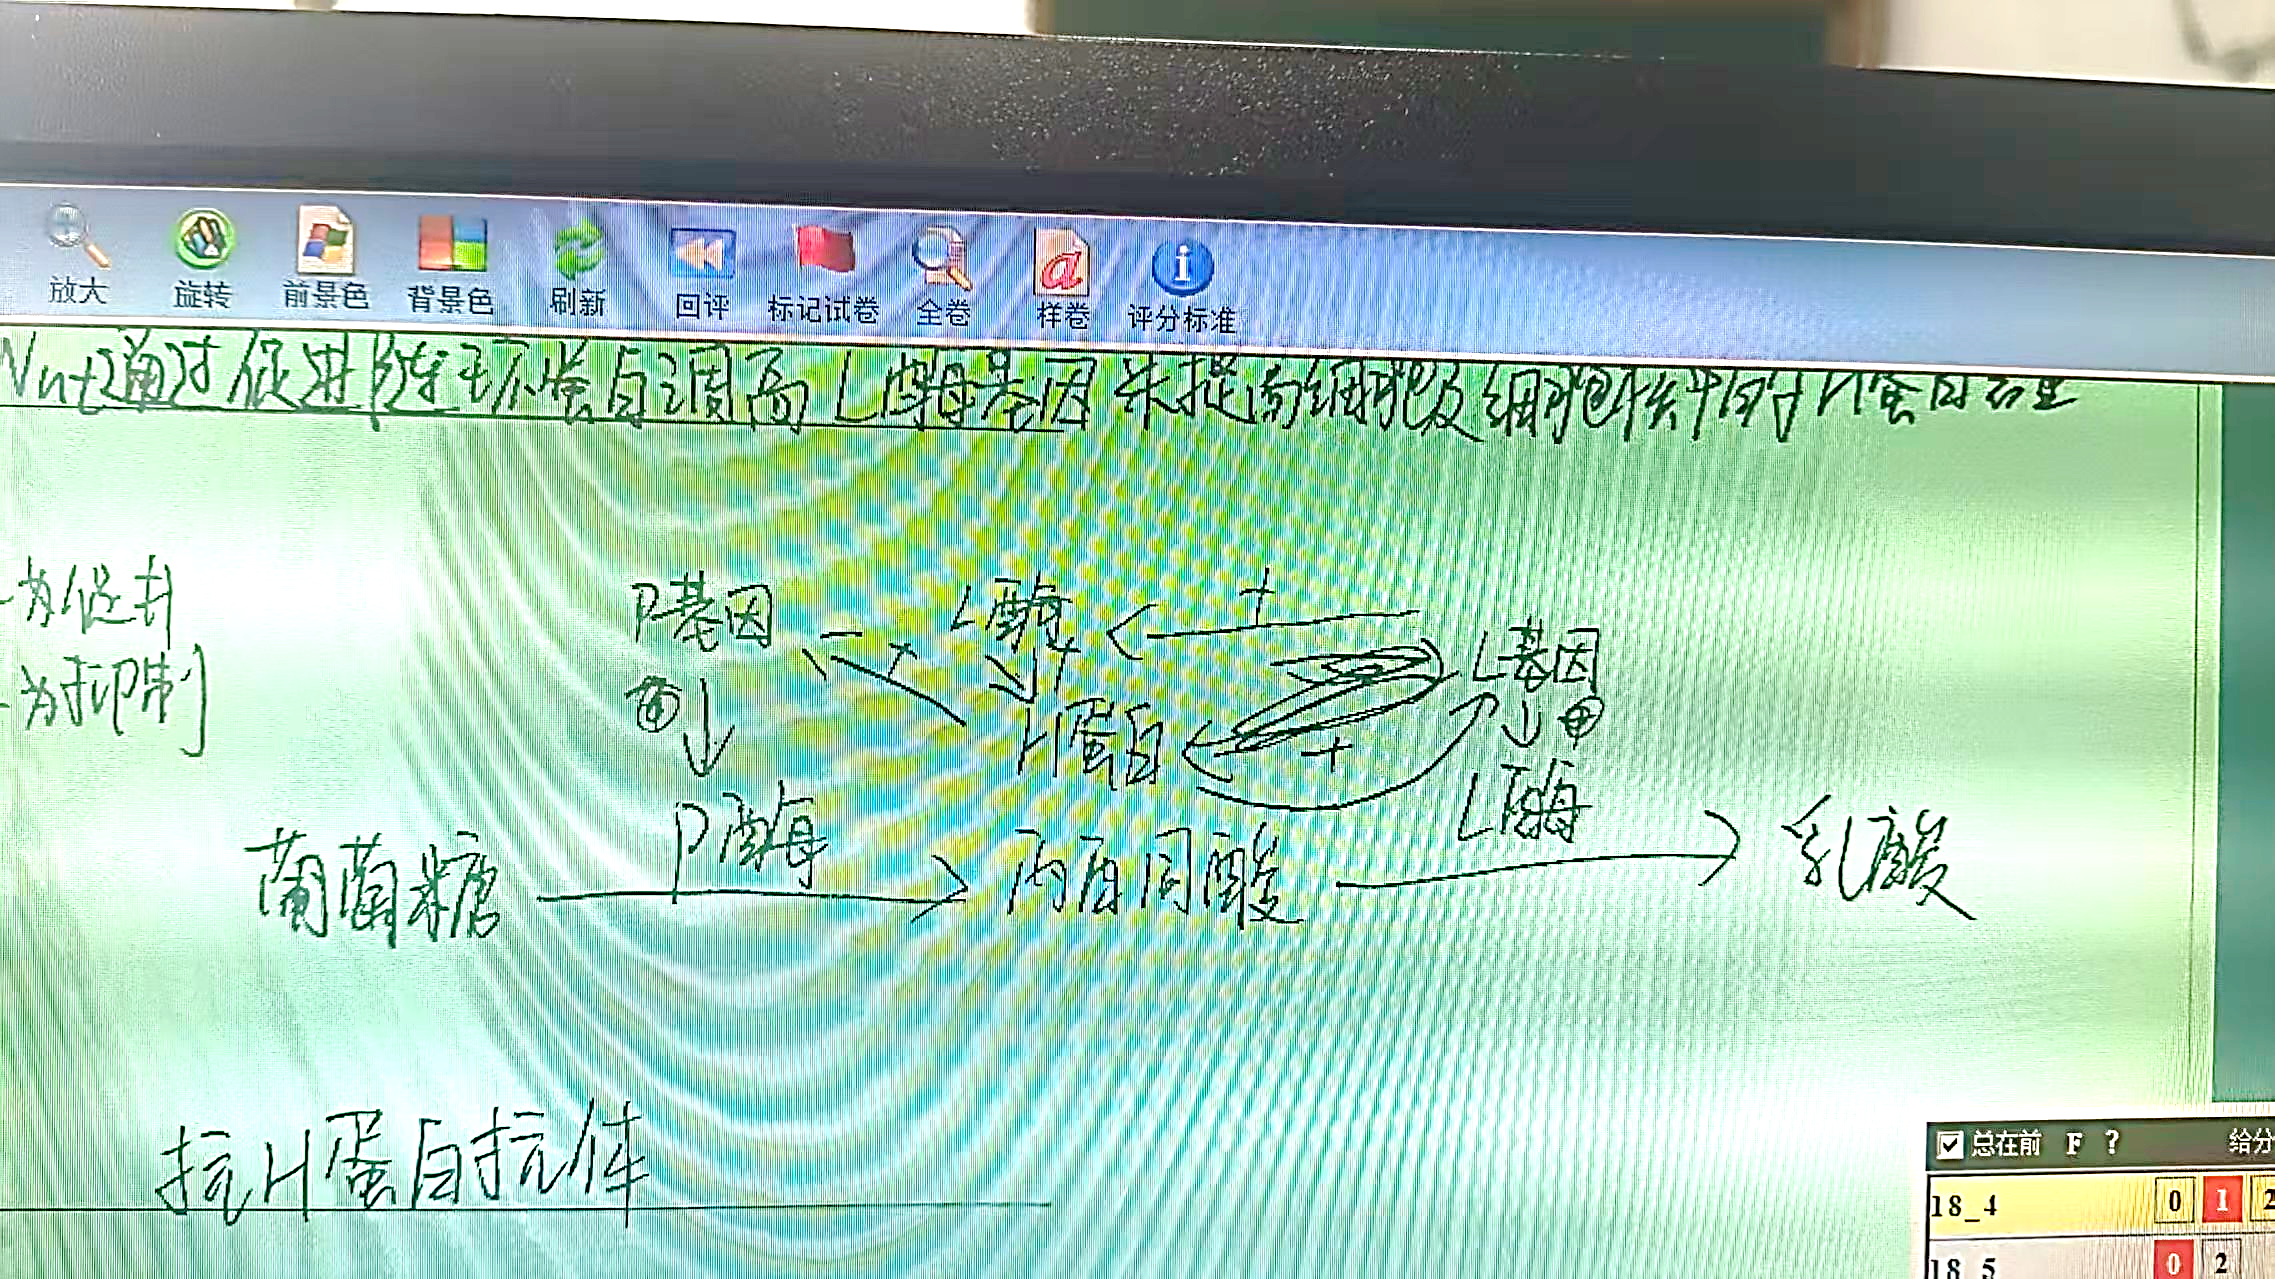 放大 旋转 前景色 背景色 刷新 回评 标记试卷 全卷 样卷 评分标准
通过促进 蛋白调高L酶基因来提高细胞及细胞核中的H蛋白含量
为促进
为抑制
P基因 L酶 + L基因
+
H蛋白 +
P酶 L酶
葡萄糖 丙酮酸 乳酸
抗H蛋白抗体
总在前 F ? 给分
18_4 0 1 2
18_5 0 2